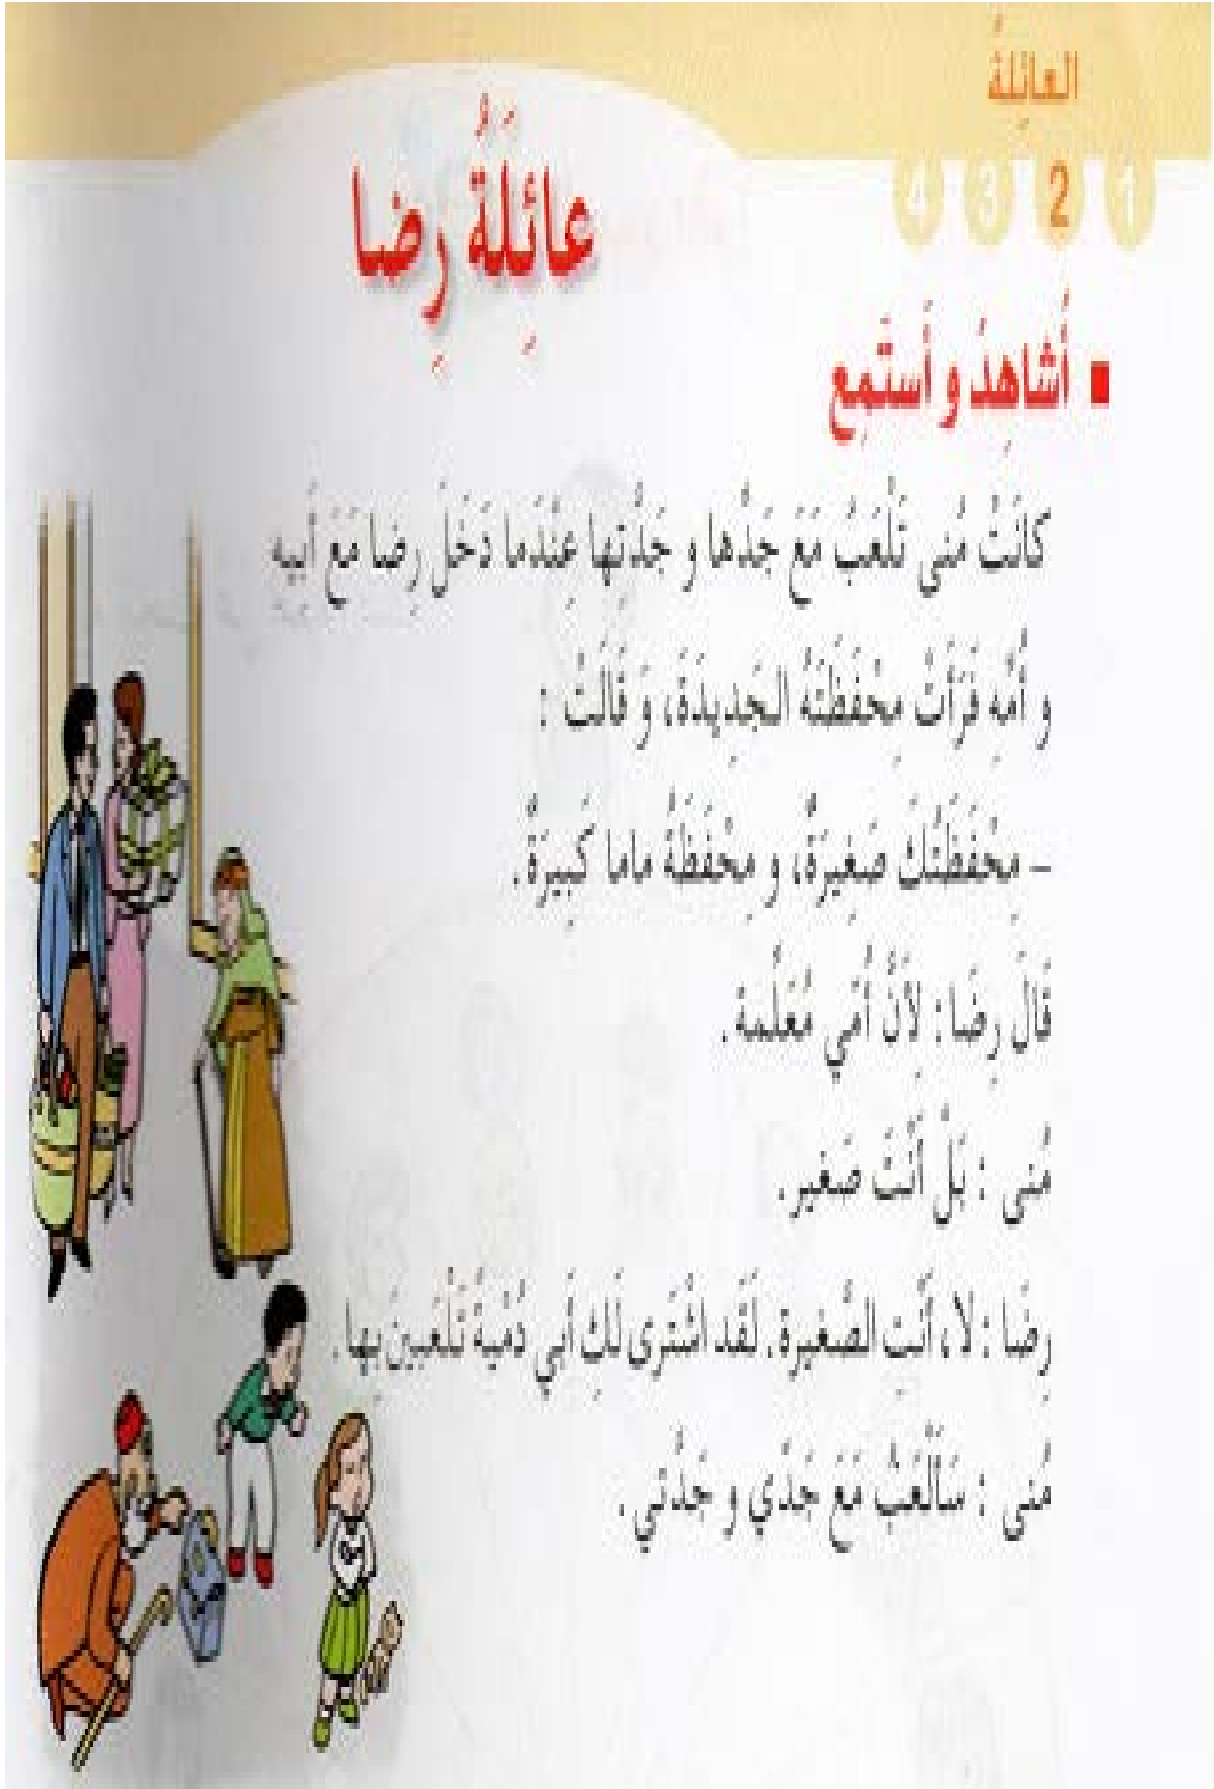 العائِلةُ
1 2 3 4
عائِلَةُ رِضا
أُشاهِدُ و أَستَمِع
كانَتْ مُنى تَلْعَبُ مَعَ جَدِّها و جَدَّتِها عِنْدَما دَخَلَ رِضا مَعَ أَبيه
و أُمِّهِ فَرَأَتْ مِحْفَظَتَهُ الـجَدِيدَةَ، وَ قَالَتْ :
– مِحْفَظَتُكَ صَغِيرَةٌ، و مِحْفَظَةُ ماما كَبِيرَةٌ.
قَالَ رِضَا : لِأَنَّ أُمِّي مُعَلِّمة .
مُنى : بَلْ أَنْتَ صَغير.
رِضَا : لا، أَنْتِ الصَّغيرة. لَقَد اشْتَرى لَكِ أَبي دُمْيَةً تَلْعَبينَ بِها.
مُنى : سَأَلْعَبُ مَعَ جَدِّي و جَدَّتي.